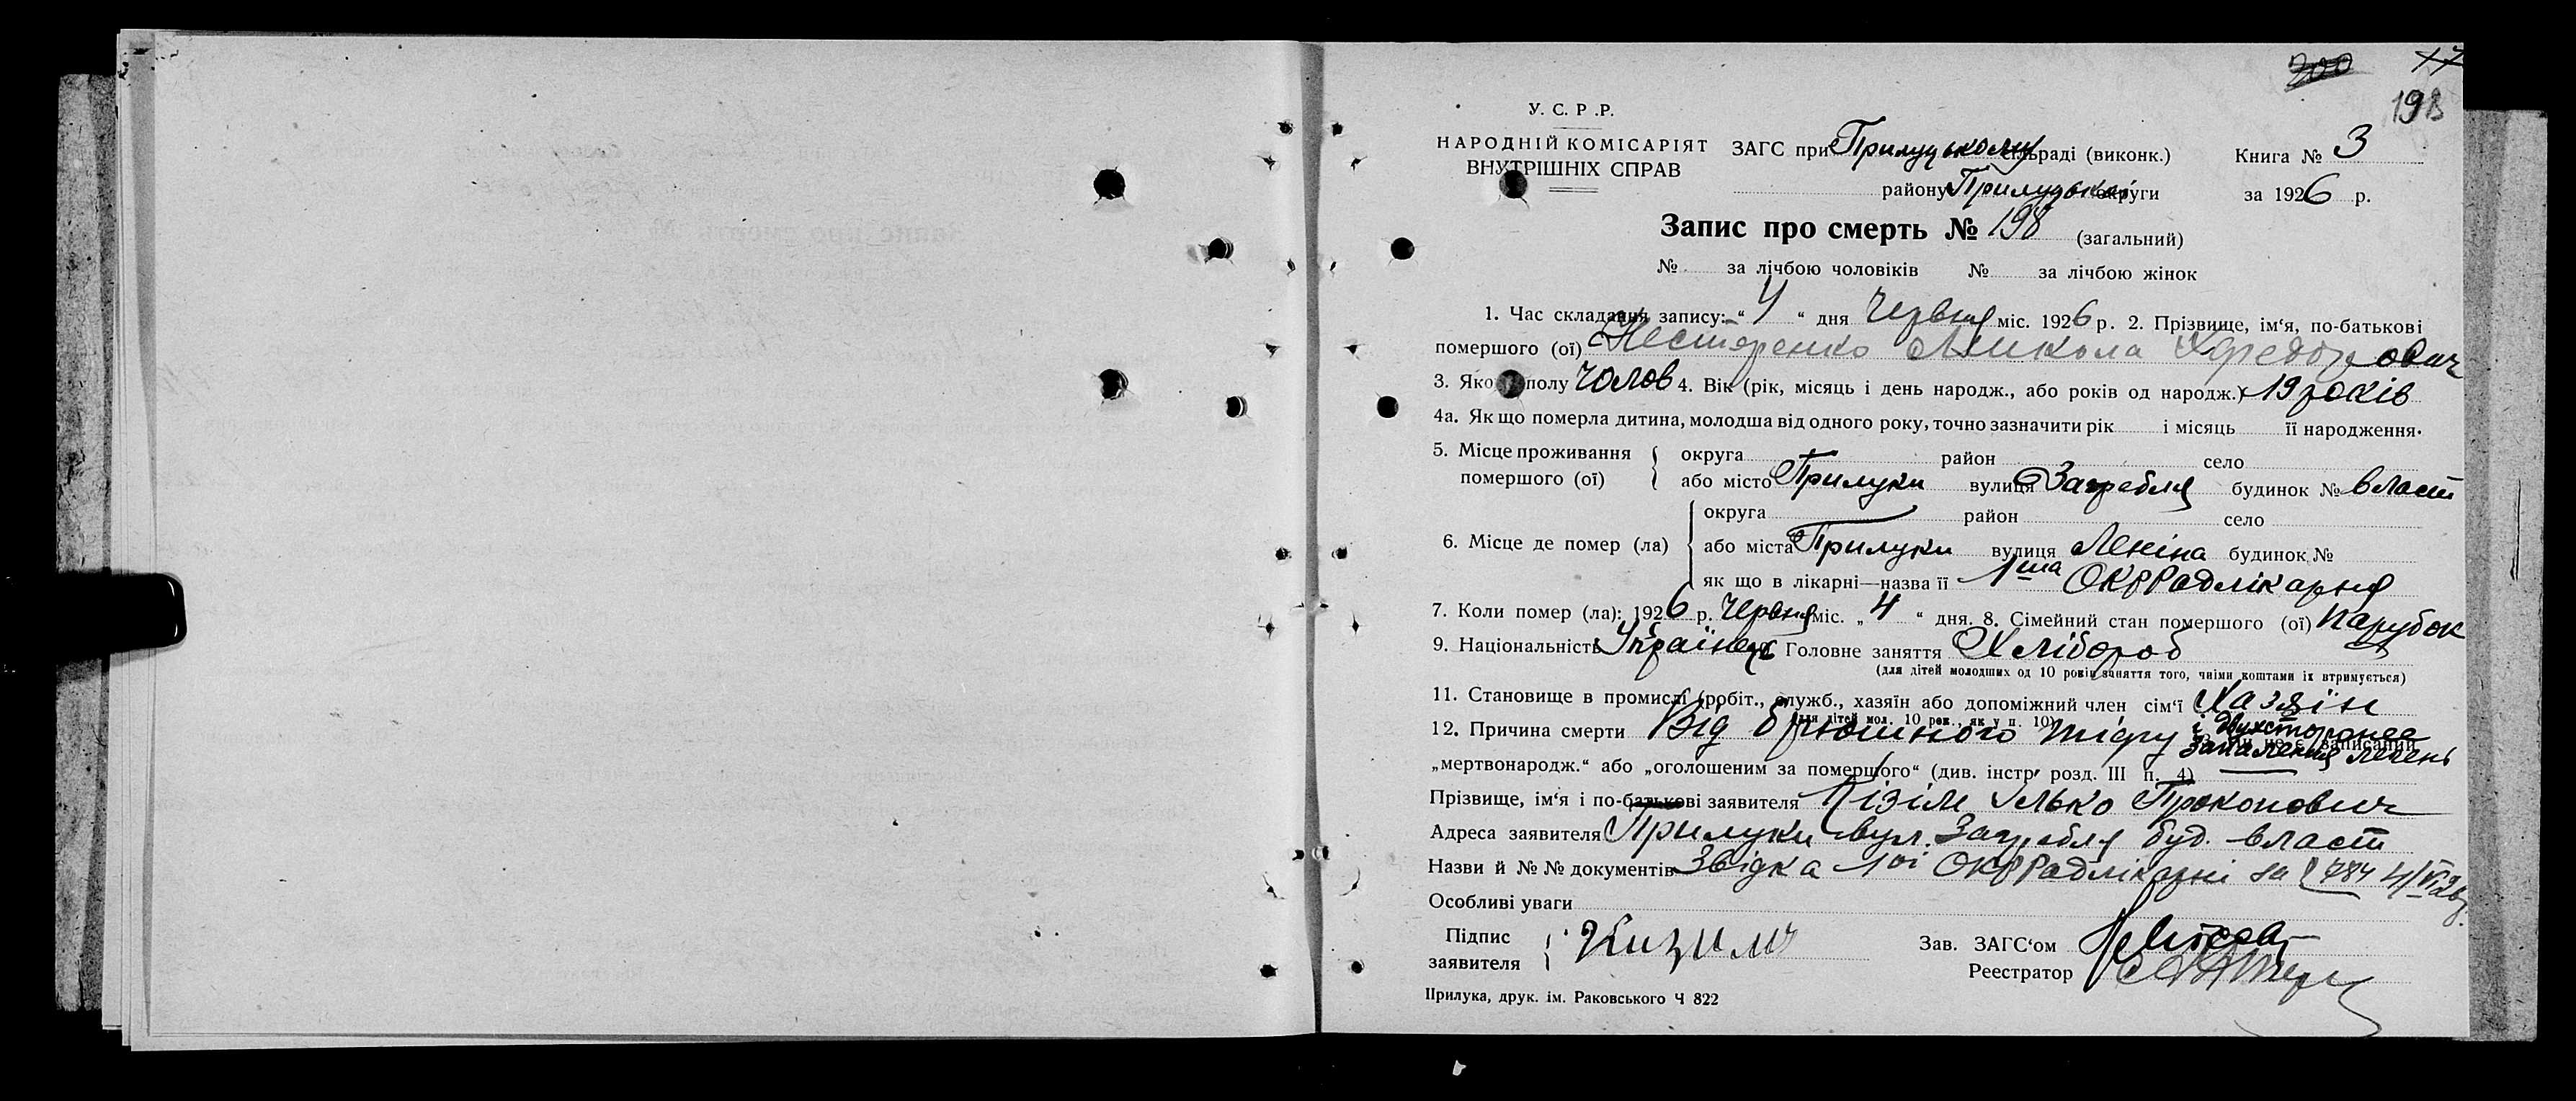 200 17
193
У. С. Р .Р.
НАРОДНІЙ КОМІСАРІЯТ
ВНУТРІШНІХ СПРАВ
ЗАГС при Прилуцькому сільраді (виконк.) Книга № 3
району Прилуцької округи за 1926 р.
Запис про смерть № 198 (загальний)
№ за лічбою чоловіків № за лічбою жінок
1. Час складання запису: “ 4 “ дня червня міс. 1926 р. 2. Прізвище, ім‘я, по-батькові
помершого (ої) Нестеренко Микола Хфедорович
3. Якого полу Чолов 4. Вік (рік, місяць і день народж., або років од народж.) 19 років
4а. Як що померла дитина, молодша від одного року, точно зазначити рік і місяць її народження.
5. Місце проживання помершого (ої) округа район село
або місто Прилуки вулиця Загребля будинок № власт
6. Місце де помер (ла) округа район село
або міста Прилуки вулиця Леніна будинок №
як що в лікарні—назва її 1ша Окррадлікарня
7. Коли помер (ла): 1926 р. червня міс. „ 4 “ дня. 8. Сімейний стан помершого (ої) парубок
9. Національність Українець Головне заняття Хлібороб
(для дітей молодших од 10 років заняття того, чиїми коштами їх втримується)
11. Становище в промислі (робіт., служб., хазяїн або допоміжний член сім‘ї Хазяїн
(для дітей мол. 10 рок., як у п. 10)
12. Причина смерти Від брюшного тіфу і двухстороннее запалення легень
записаний
„мертвонародж.“ або „оголошеним за помершого“ (див. інстр. розд. III п. 4)
Прізвище, ім‘я і по-батькові заявителя Кізім Ілько Прокопович
Адреса заявителя Прилуки вул. Загребля буд. власт
Назви й № № документів Звідка 1ої Окррадлікарні за 784 4/VI 26р.
Особливі уваги
Підпис заявителя Кизим
Зав. ЗАГС‘ом
Реестратор
Прилука, друк. ім. Раковського Ч 822